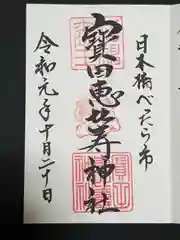 日本橋べったら市
寳田恵比寿神社
令和元年十月二十日